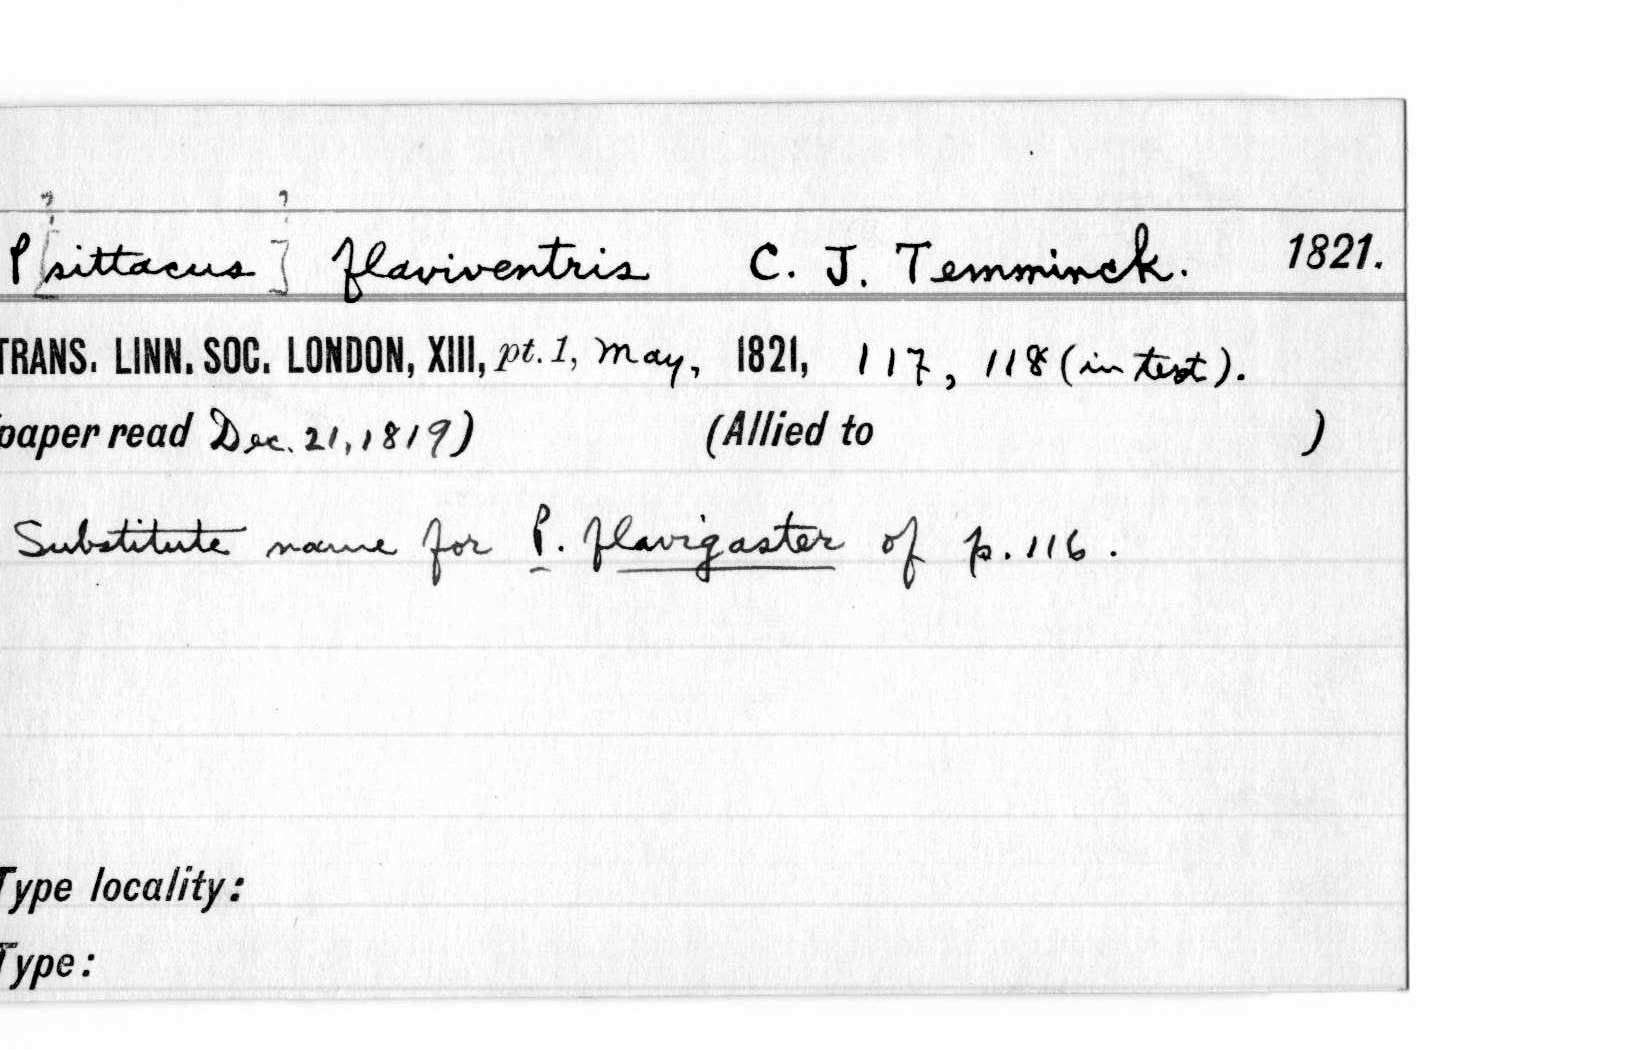 ? ?
P[sittacus] flaviventris C. J. Temminck. 1821.
TRANS. LINN. SOC. LONDON, XIII, pt. 1, May, 1821, 117, 118 (in text).
paper read Dec. 21, 1819) (Allied to )
Substitute name for P. flavigaster of p. 116.
Type locality:
Type: